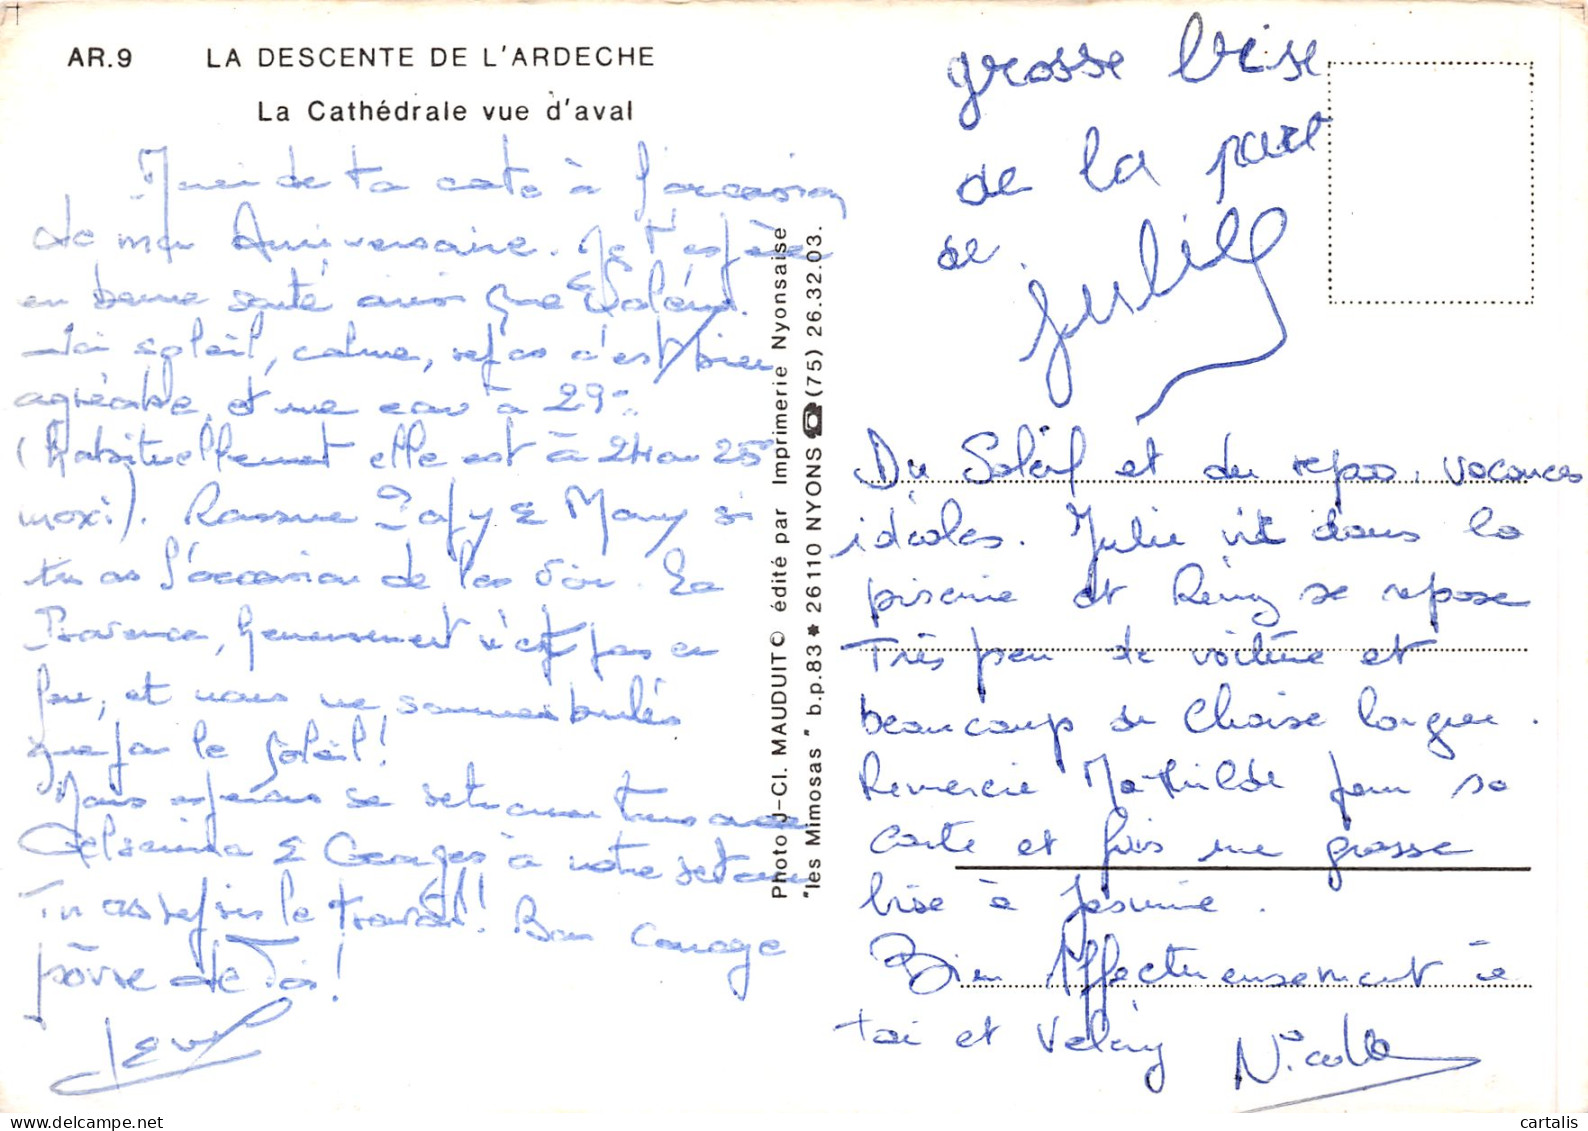 AR.9 LA DESCENTE DE L'ARDECHE
La Cathédrale vue d'aval
Merci de ta carte à l'occasion
de mon Anniversaire. Je t'espère
en bonne santé ainsi que Valéry.
Ici soleil, calme, repos c'est bien
agréable, et une eau à 29°
(habituellement elle est à 24 ou 25°
maxi). Rassure Pafy & Mamy si
tu as l'occasion de les voir. La
Provence, heureusement n'est pas en
feu, et nous ne sommes brulés
que par le soleil!
Nous espérons se retrouver tous avec
Gelsomina & Georges à notre retour
Tu as repris le travail! Bon Courage
pôvre de Toi!
Photo J-Cl. MAUDUIT © édité par Imprimerie Nyonsaise
"les Mimosas" b.p.83 * 26110 NYONS ☎ (75) 26.32.03.
grosse bise
de la part
de
Julie
Du Soleil et du repos, vacances
idéales. Julie vit dans la
piscine et Rémy se repose
Très peu de voiture et
beaucoup de Chaise longue.
Remercie Mathilde pour sa
carte et fais une grosse
bise à
Bien Affectueusement à
toi et Valéry Nicole
cartalis